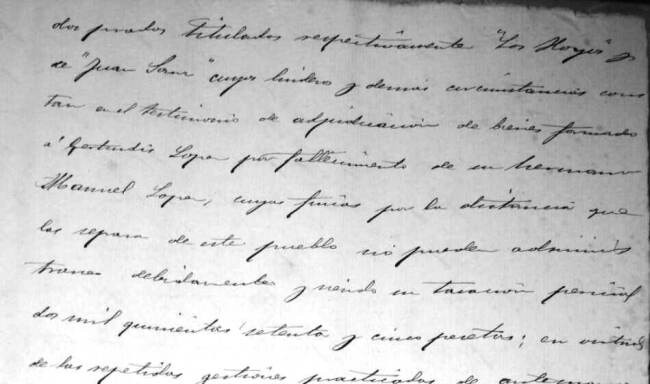 dos prados titulados respectivamente "Los Hoyos" y
de "Juan Sanz" cuyos linderos y demás circunstancias cons
tan en el testimonio de adjudicación de bienes formado
á Gertrudis Lopez por fallecimiento de su hermano
Manuel Lopez, cuyas fincas por la distancia que
las separa de este pueblo no pueden adminis
trarse debidamente y siendo su tasación pericial
dos mil quinientas setenta y cinco pesetas; en virtud
de las repetidas gestiones practicadas de